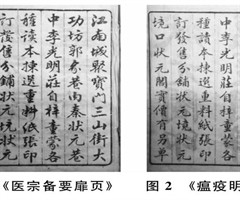 江南城聚寶門三山街大
功坊郭家巷內秦狀元巷
中李光明莊自梓童蒙各
種讀本揀選重料紙張印
訂發售分鋪狀元境狀元
中李光明莊自梓童蒙各
種讀本揀選重料紙張印
訂發售分鋪狀元境狀元
境口狀元閣實價有另單
《医宗备要扉页》
图 2 《瘟疫明